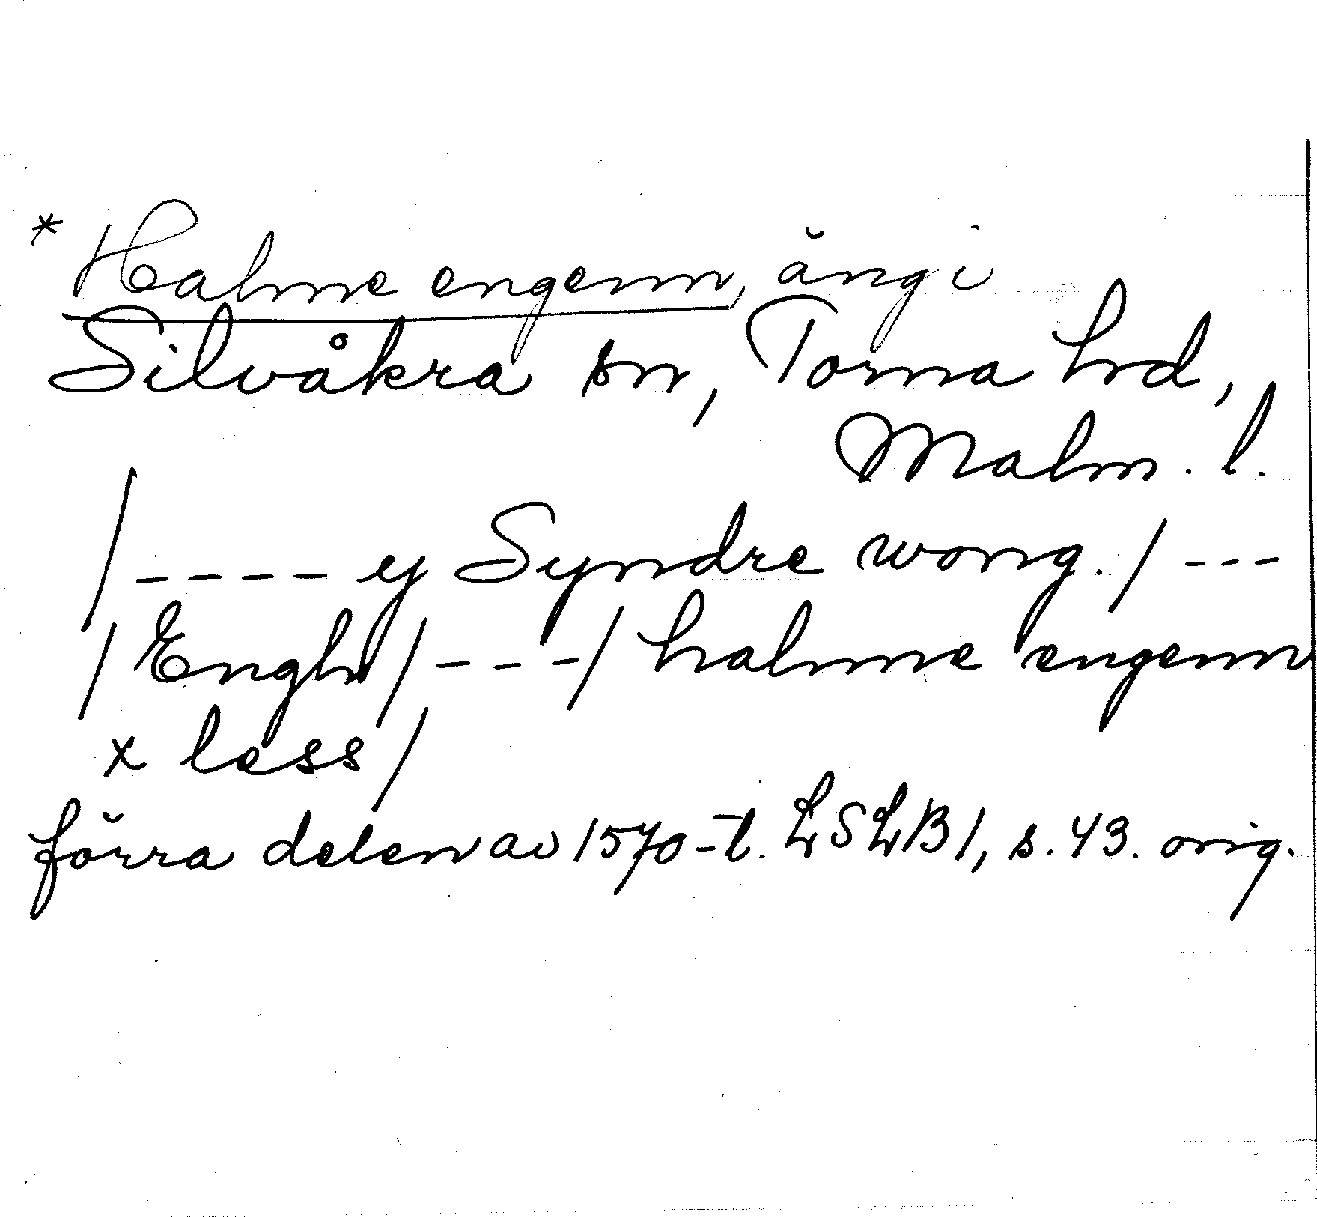 * Halme engenn, äng i
Silvåkra sn, Torna hd,
Malm. l.
/ - - - - y Syndre wong. / - - -
/ Engh / - - - / halme engenn
x less /
förra delen av 1570-t. LSLB 1, s. 43. orig.